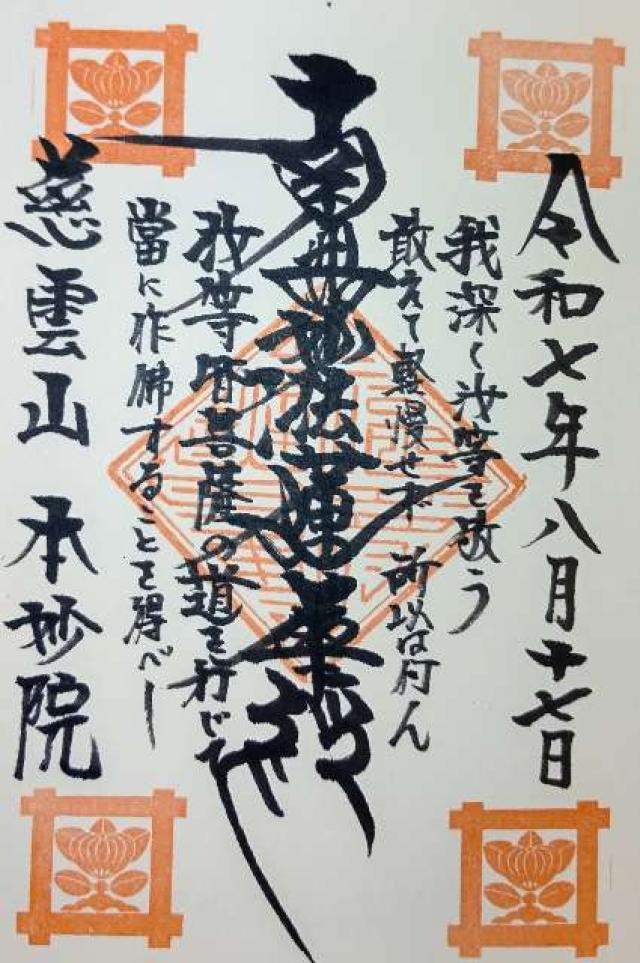 令和七年八月十七日
我深く汝等を敬う
敢えて軽慢せず 所以は何ん
南無妙法蓮華経
汝等皆菩薩の道を行じて
當に作佛することを得べし
慈雲山 本妙院